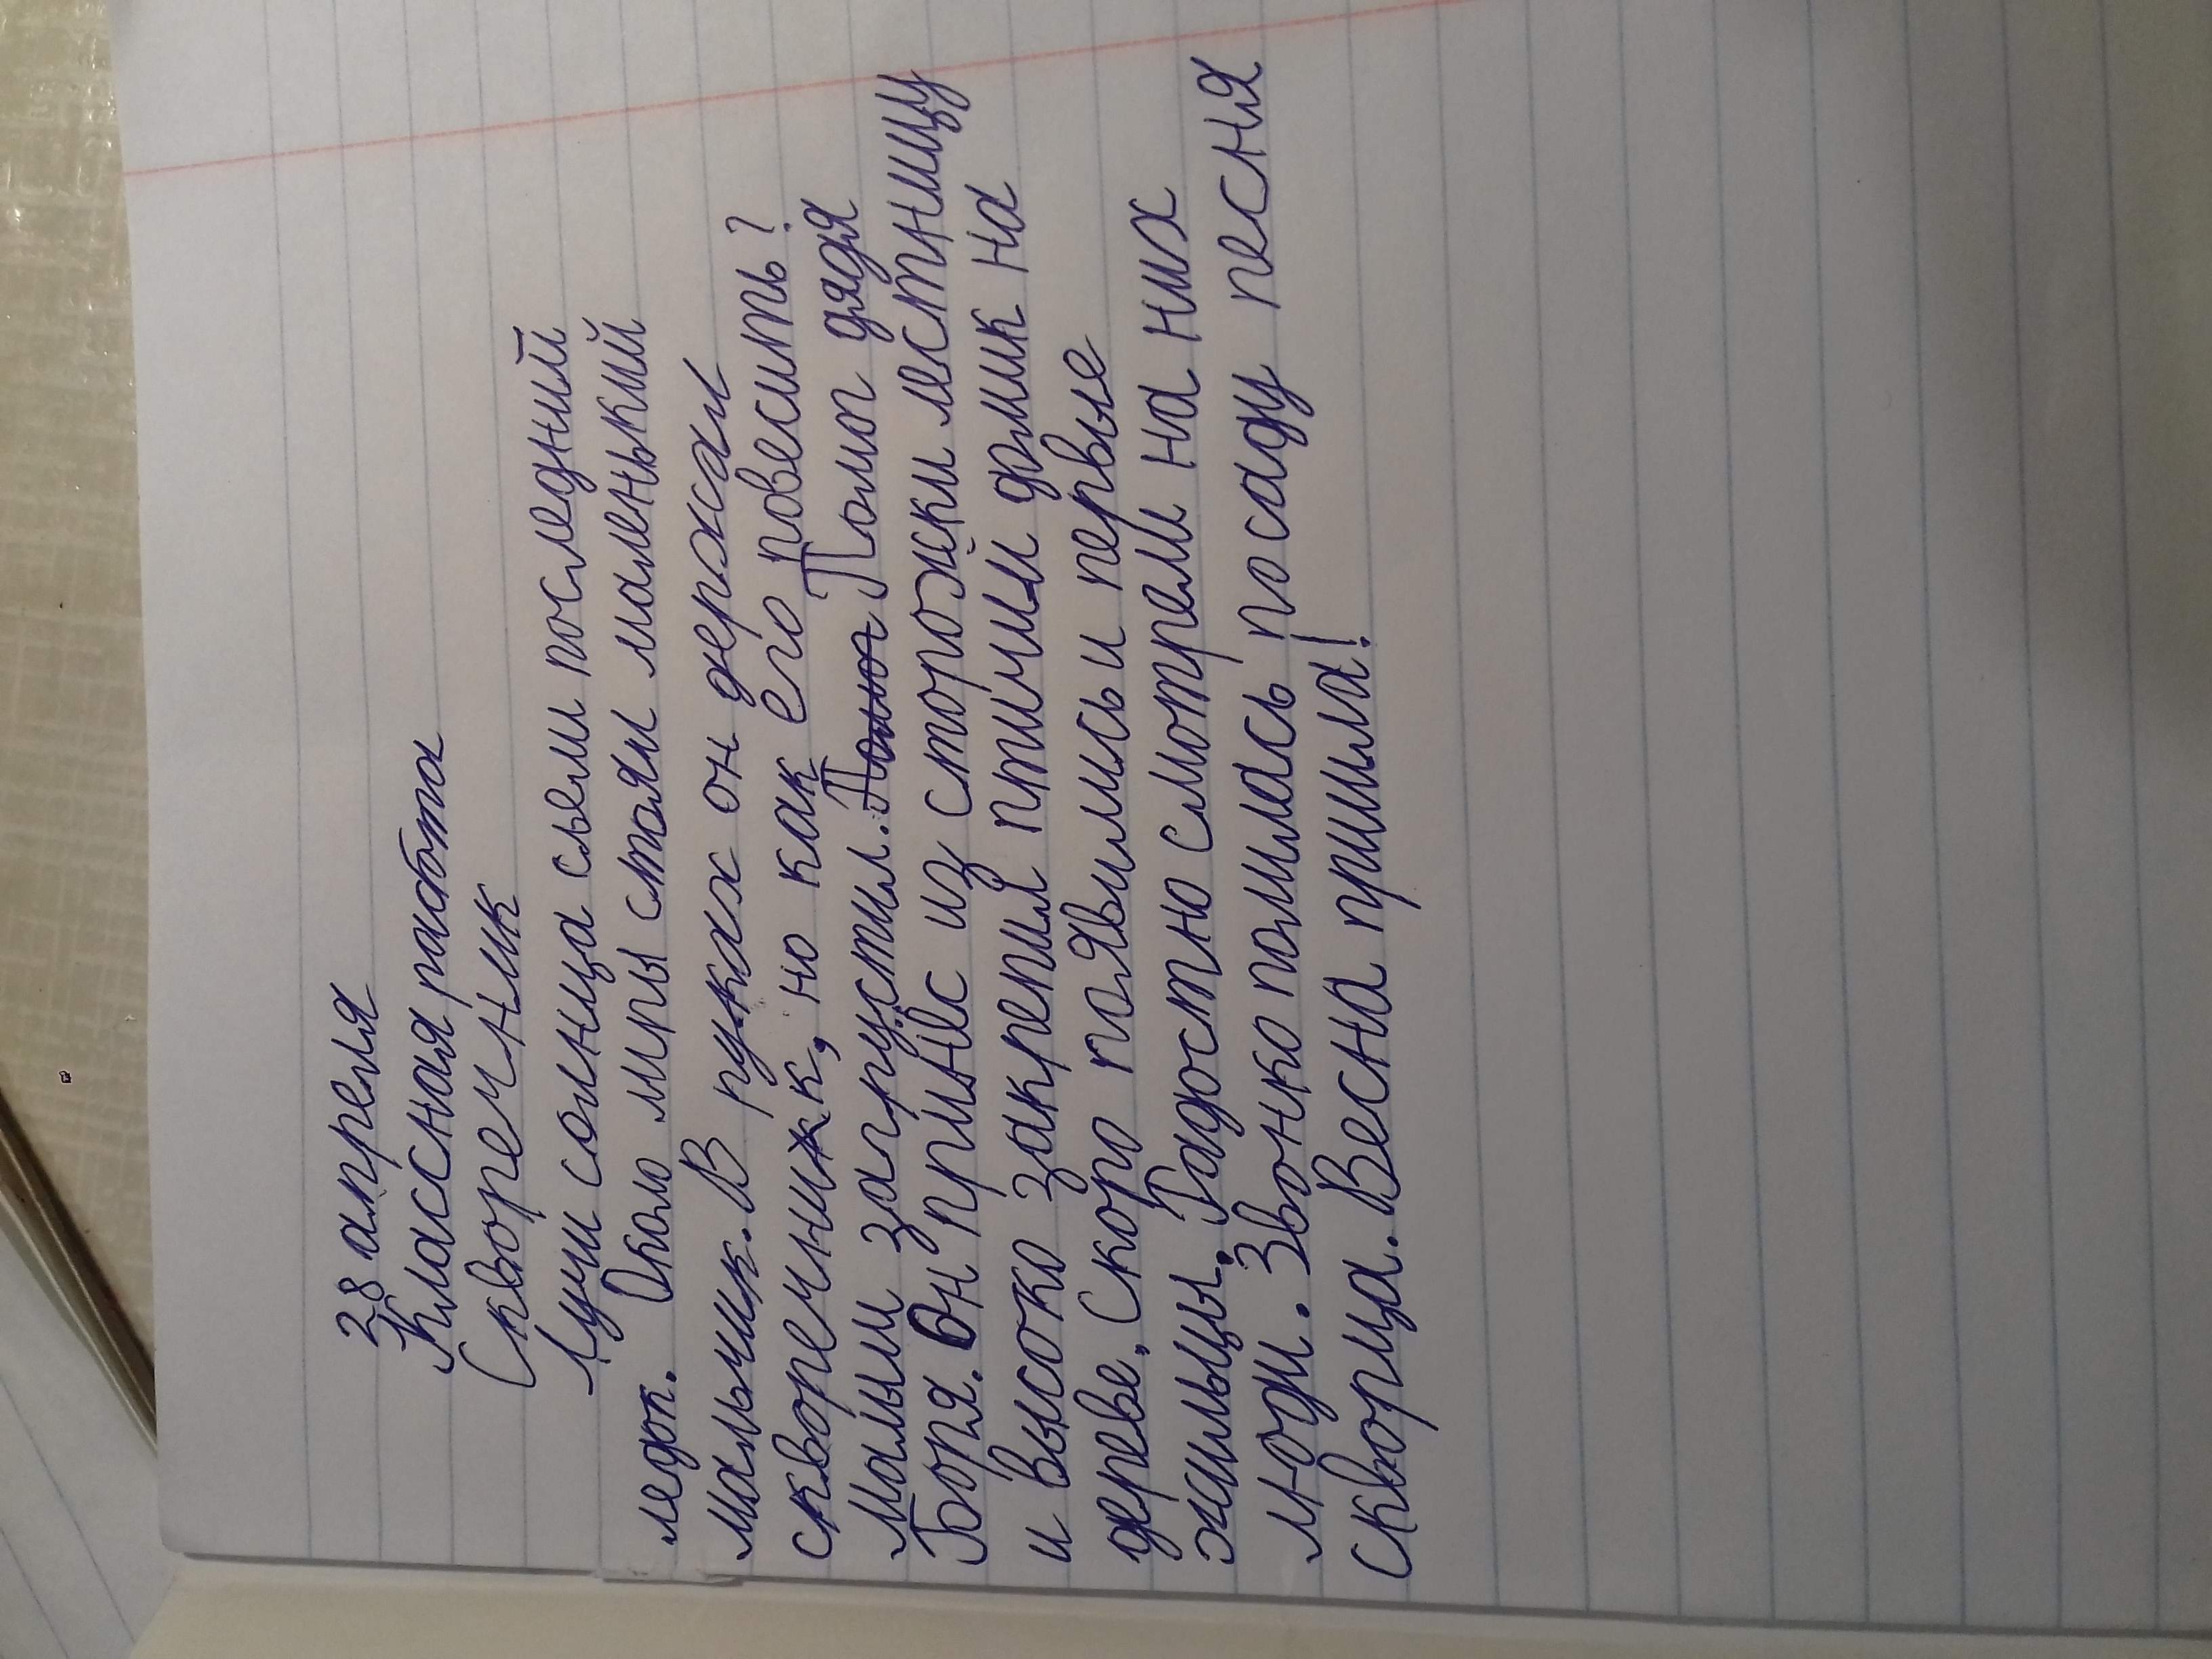 28 апреля
Классная работа
Скворечник
Лучи солнца сьели последний
ледок. Около липы стоял маленький
мальчик. В руках он держал
скворечник, но как его повесить?
Малыш загрустил. Помог дядя
Боря. Он принёс из сторожки лестницу
и высоко закрепил птичий домик на
дереве. Скоро появились и первые
жильцы. Радостно смотрели на них
люди. Звонко полилась посаду песня
скворца. Весна пришла!